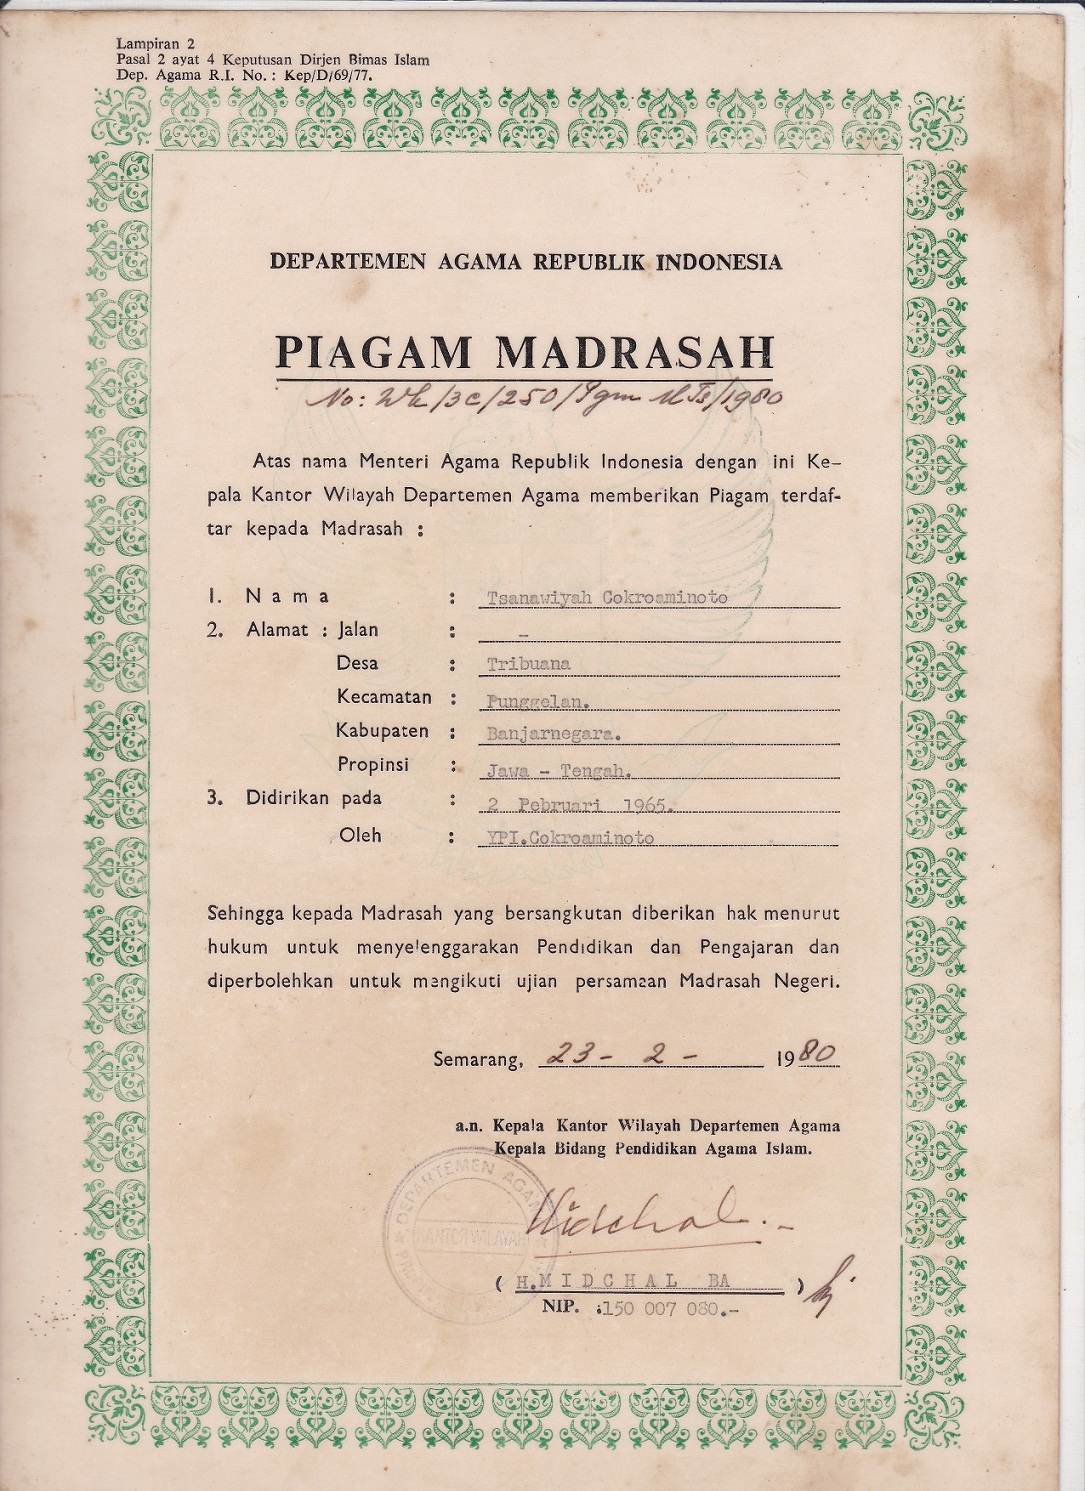 Lampiran 2
Pasal 2 ayat 4 Keputusan Dirjen Bimas Islam
Dep. Agama R.I. No. : Kep/D/69/77.
DEPARTEMEN AGAMA REPUBLIK INDONESIA
PIAGAM MADRASAH
No: Wk/3c/250/Pgm MTs/1980
Atas nama Menteri Agama Republik Indonesia dengan ini Ke–
pala Kantor Wilayah Departemen Agama memberikan Piagam terdaf-
tar kepada Madrasah :
1. N a m a : Tsanawiyah Cokroaminoto
2. Alamat : Jalan : –
Desa : Tribuana
Kecamatan : Punggelan.
Kabupaten : Banjarnegara.
Propinsi : Jawa – Tengah.
3. Didirikan pada : 2 Pebruari 1965.
Oleh : YPI.Cokroaminoto
Sehingga kepada Madrasah yang bersangkutan diberikan hak menurut
hukum untuk menyelenggarakan Pendidikan dan Pengajaran dan
diperbolehkan untuk mengikuti ujian persamaan Madrasah Negeri.
Semarang, 23 - 2 - 1980
a.n. Kepala Kantor Wilayah Departemen Agama
Kepala Bidang Pendidikan Agama Islam.
DEPARTEMEN AGAMA
KANTOR WILAYAH
Midchal.-
( H.MIDCHAL BA )
NIP. :150 007 080.-